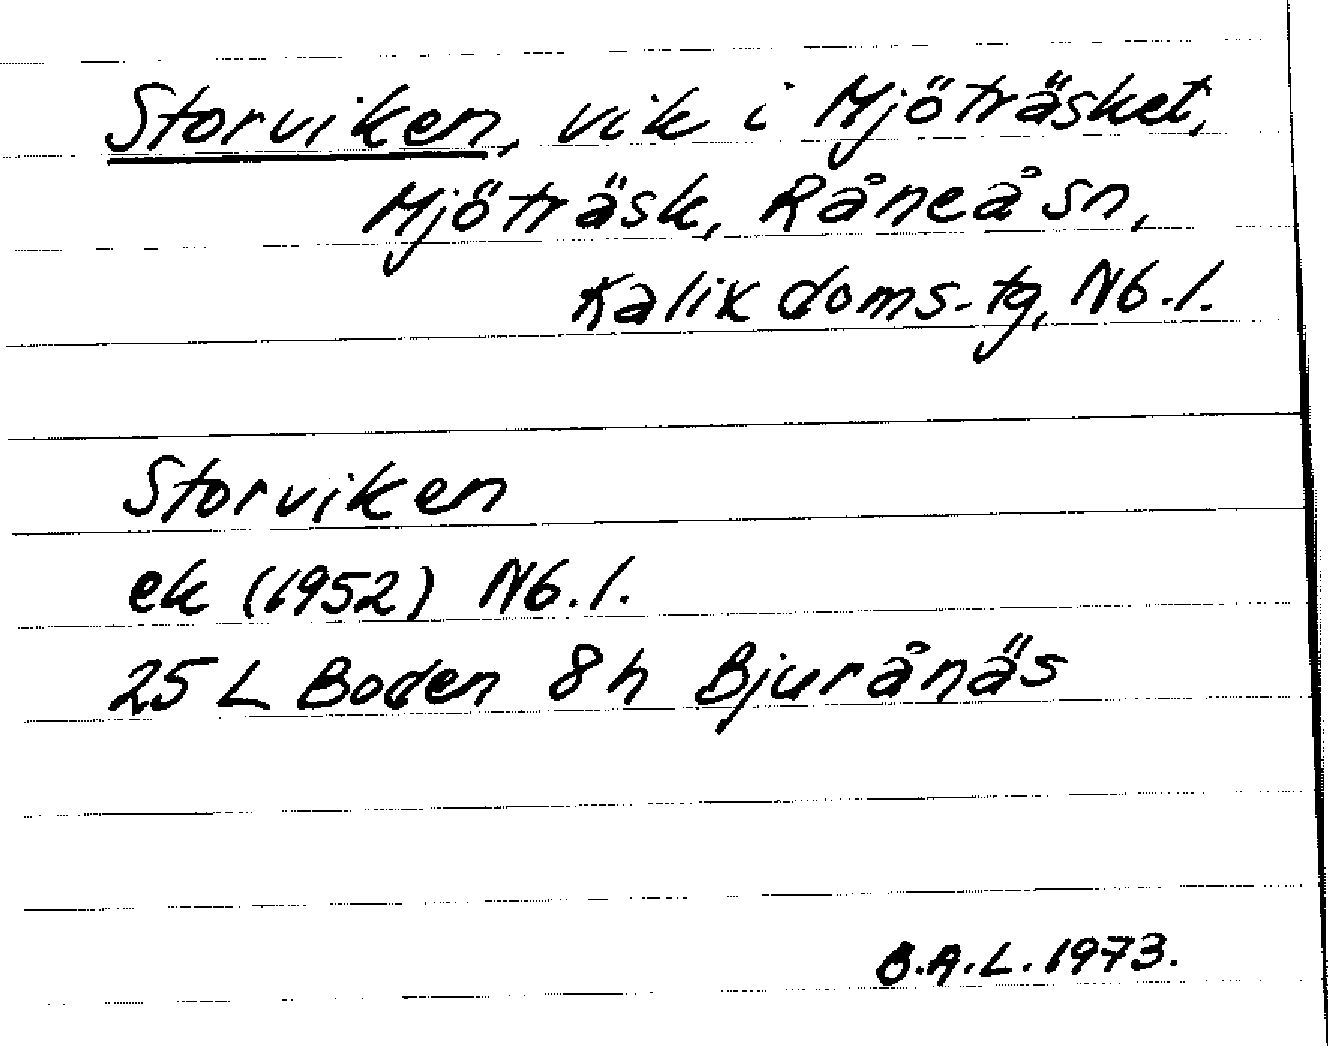 Storviken, vik i Mjöträsket,
Mjöträsk, Råneå sn,
Kalix doms-tg, Nb.l.
Storviken
ek (1952) Nb.l.
25 L Boden 8 h Bjurånäs
B.A.L. 1973.